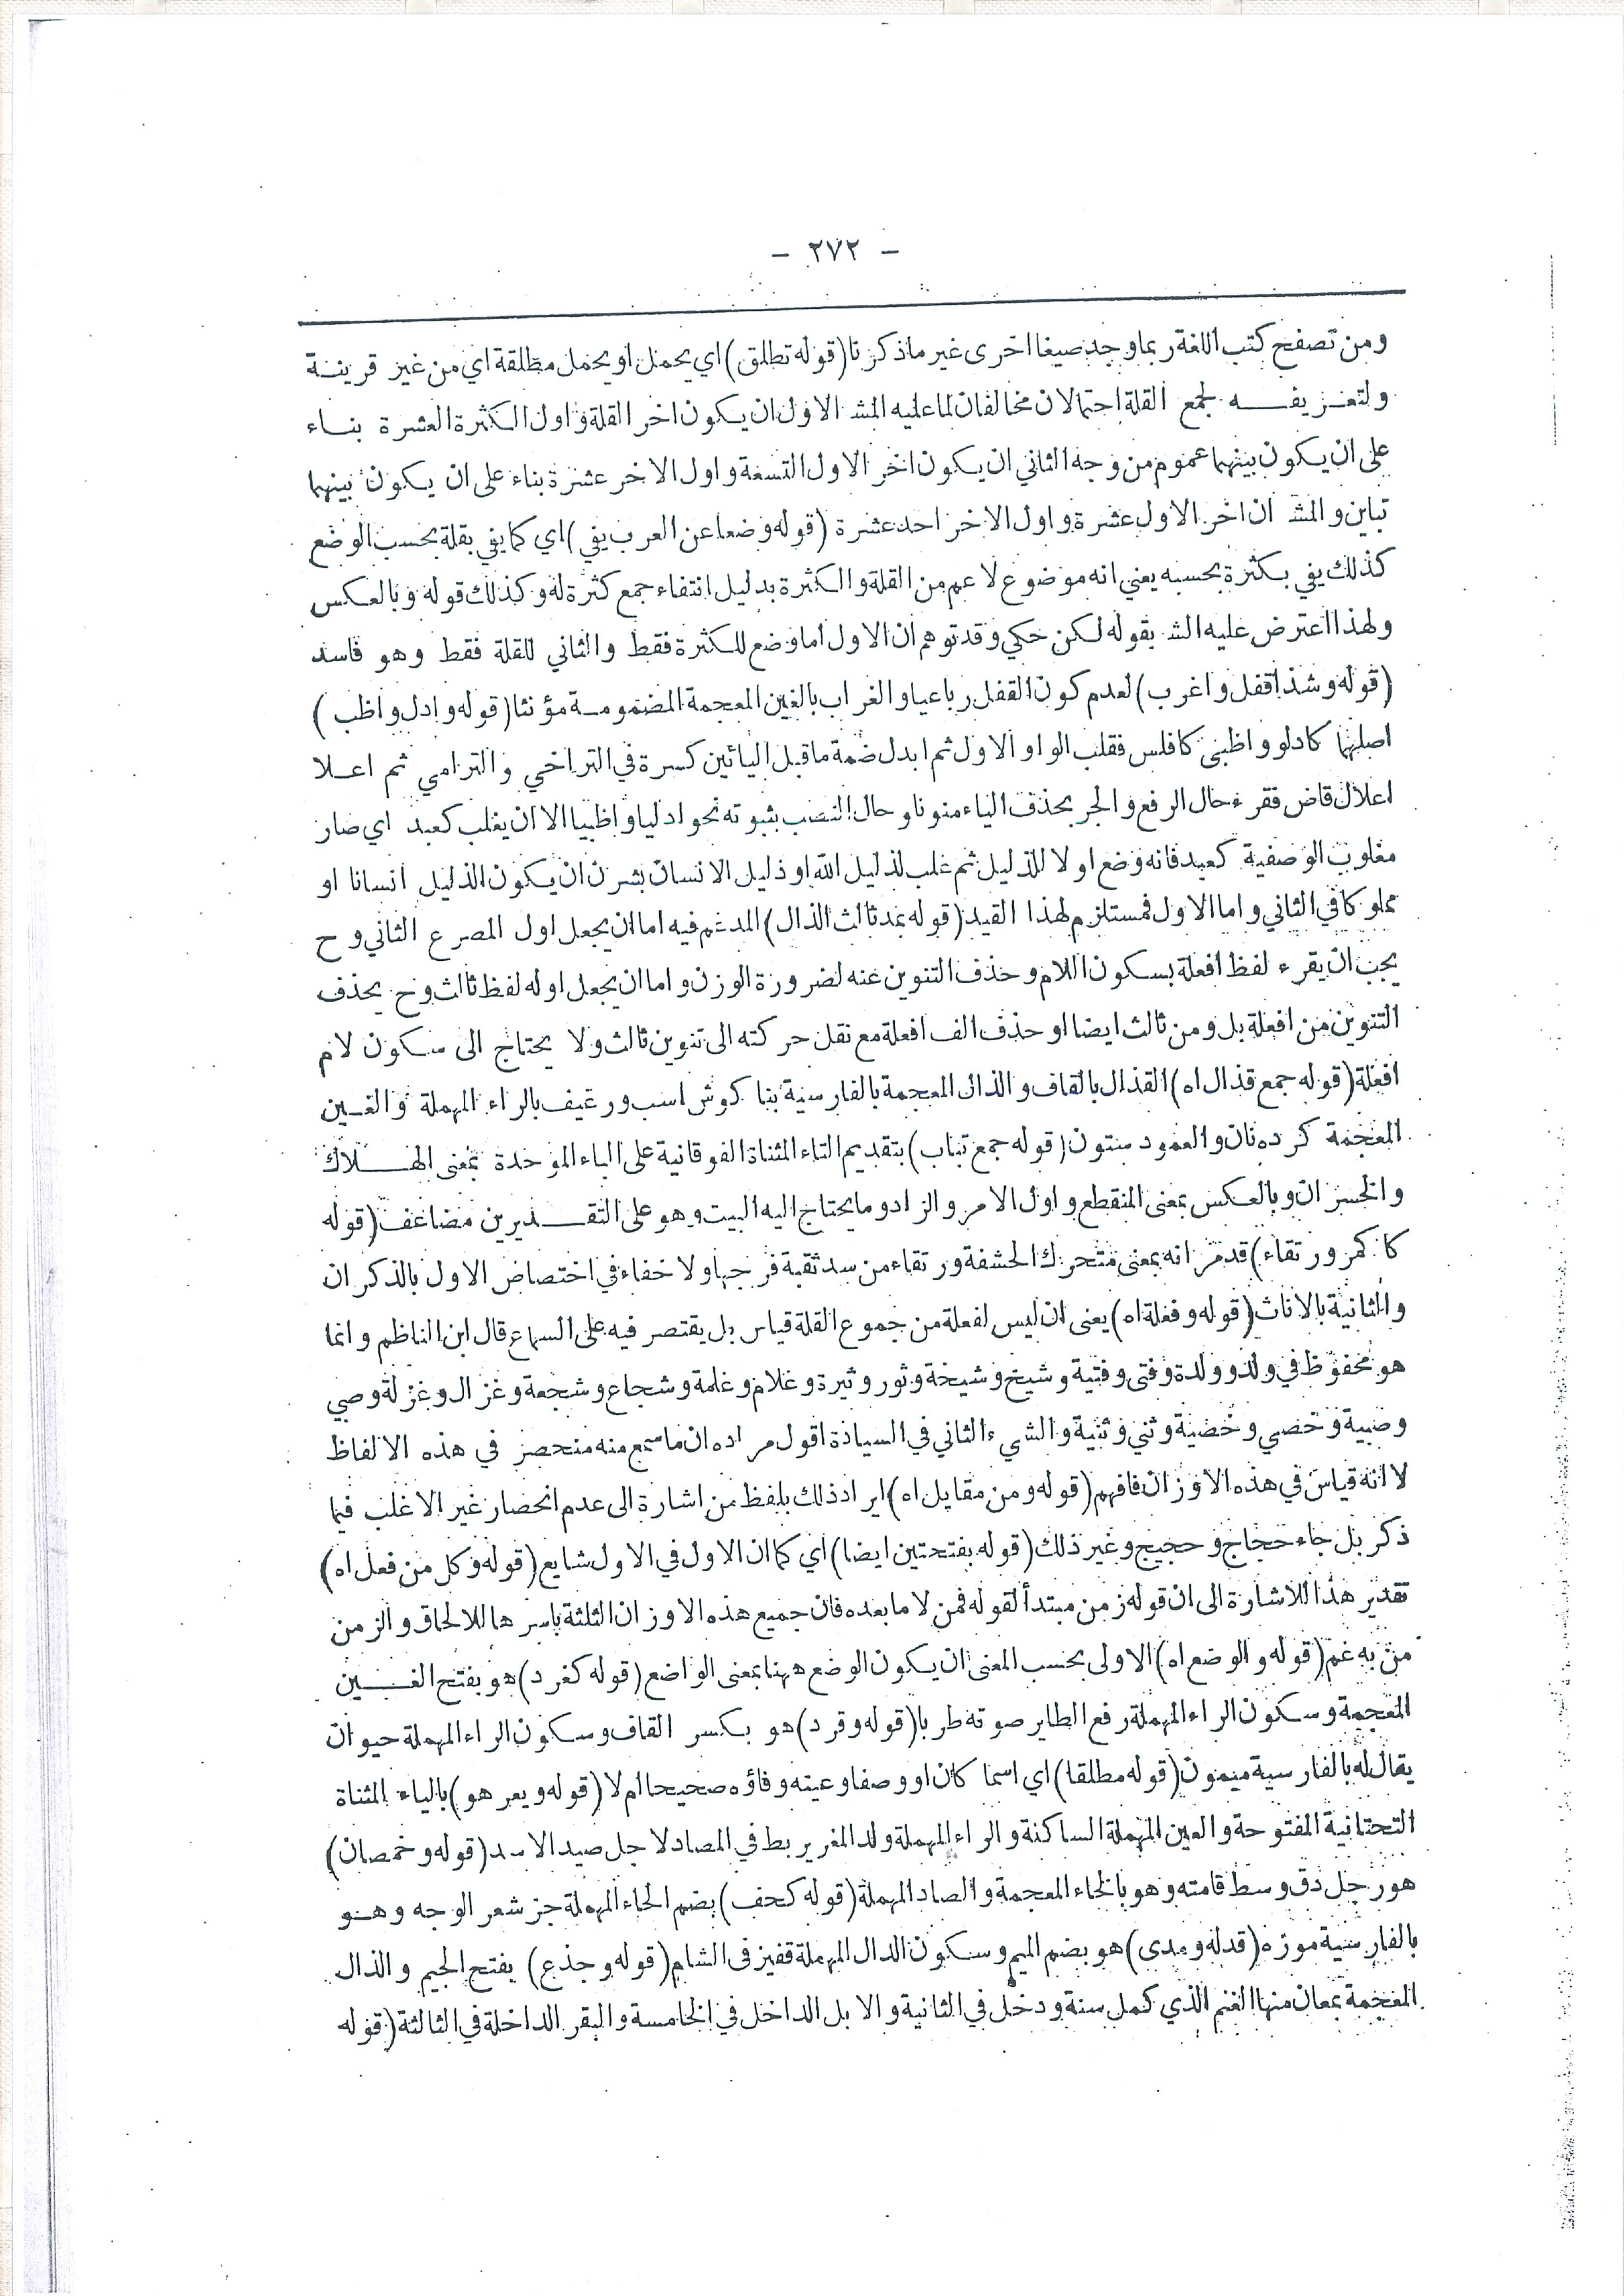 - ٢٧٢ -
ومن تصفح كتب اللغة ربما وجد صيغا اخرى غير ما ذكرنا (قوله تطلق) اى يحمل او يحمل مطلقة اى من غير قرينة
ولتعريفه لجمع القلة احتمالان مخالفان لما عليه المش الاول ان يكون اخر القلة و اول الكثرة العشرة بناء
على ان يكون بينهما عموم من وجه الثاني ان يكون اخر الاول التسعة و اول الاخر عشرة بناء على ان يكون بينهما
تباين و المش ان اخر الاول عشرة و اول الاخر احد عشرة (قوله وضعا عن العرب يفي) اى كما يفي بقلة بحسب الوضع
كذلك يفي بكثرة بحسبه يعني انه موضوع لاعم من القلة و الكثرة بدليل انتفاء جمع كثرة له و كذلك قوله و بالعكس
ولهذا اعترض عليه الش بقوله لكن حكي و قد توهم ان الاول اما وضع للكثرة فقط والثاني للقلة فقط وهو فاسد
(قوله و شذ اقفل و اغرب) لعدم كون القفل رباعيا و الغراب بالغين المعجمة المضمومة مؤنثا (قوله و ادل و اظب)
اصلهما كادلو و اظبى كافلس فقلب الواو الاول ثم ابدل ضمة ما قبل اليائين كسرة في التراخي و الترامي ثم اعلا
اعلال قاض فقرء حال الرفع و الجر بحذف الياء منونا و حال النصب بثبوته نحو ادليا و اظبيا الا ان يغلب كعبد اي صار
مغلوب الوصفية كعبد فانه وضع اولا للذليل ثم غلب لذليل الله او ذليل الانسان بشرن ان يكون الذليل انسانا او
مملوكا في الثاني و اما الاول فمستلزم لهذا القيد (قوله بمد ثالث الذال) المدغم فيه اما ان يجعل اول المصرع الثاني و ح
يجب ان يقرء لفظ افعلة بسكون اللام و حذف التنوين عنه لضرورة الوزن و اما ان يجعل اوله لفظ ثالث و ح يحذف
التنوين من افعلة بل و من ثالث ايضا او حذف الف افعلة مع نقل حركته الى تنوين ثالث و لا يحتاج الى سكون لام
افعلة (قوله جمع قذال اه) القذال بالقاف و الذال المعجمة بالفارسية بنا كوش اسب و رغيف بالراء المهملة و الغين
المعجمة كرده نان و العمود ستون (قوله جمع تباب) بتقديم التاء المثناة الفوقانية على الباء الموحدة بمعنى الهلاك
و الخسران و بالعكس بمعنى المنقطع و اول الامر و الزاد و ما يحتاج اليه البيت و هو على التقديرين مضاعف (قوله
كاكمر و رتقاء) قد مر انه بمعنى متحرك الحشفة و رتقاء من سد ثقبة فرجها و لا خفاء في اختصاص الاول بالذكران
و الثانية بالاناث (قوله و فعلة اه) يعنى ان ليس لفعلة من جموع القلة قياس بل يقتصر فيه على السماع قال ابن الناظم و انما
هو محفوظ في ولد و ولدة و فتى و فتية و شيخ و شيخة و ثور و ثيرة و غلام و غلمة و شجاع و شجعة و غزال و غزلة و صبي
و صبية و خصي و خصية و ثنى و ثنية و الشيء الثاني في السيادة اقول مراده ان ما سمع منه منحصر في هذه الالفاظ
لا انه قياس في هذه الاوزان فافهم (قوله و من مقابل اه) ايراد ذلك بلفظ من اشارة الى عدم انحصار غير الاغلب فيما
ذكر بل جاء حجاج و حجيج و غير ذلك (قوله بفتحتين ايضا) اي كما ان الاول في الاول شايع (قوله و كل من فعل اه)
تقدير هذا للاشارة الى ان قوله زمن مبتدأ لقوله قمن لا ما بعده فان جميع هذه الاوزان الثلثة باسرها للالحاق و الزمن
من به غم (قوله و الوضع اه) الاولى بحسب المعنى ان يكون الوضع ههنا بمعنى الواضع (قوله كغرد) هو بفتح الغين
المعجمة و سكون الراء المهملة رفع الطاير صوته طربا (قوله و قرد) هو بكسر القاف و سكون الراء المهملة حيوان
يقال له بالفارسية ميمون (قوله مطلقا) اى اسما كان او وصفا و عينه و فاؤه صحيحا ام لا (قوله و يعر هو) بالياء المثناة
التحتانية المفتوحة و العين المهملة الساكنة و الراء المهملة ولد المغر يربط في المصاد لاجل صيد الاسد (قوله و خمصان)
هو رجل دق وسط قامته و هو بالخاء المعجمة و الصاد المهملة (قوله كحف) بضم الحاء المهملة جز شعر الوجه و هو
بالفارسية موزه (قدله و مدى) هو بضم الميم و سكون الدال المهملة قفيز فى الشام (قوله و جذع) بفتح الجيم و الذال
المعجمة بمعان منها الغنم الذي كمل سنة و دخل في الثانية و الابل الداخل في الخامسة و البقر الداخلة في الثالثة (قوله